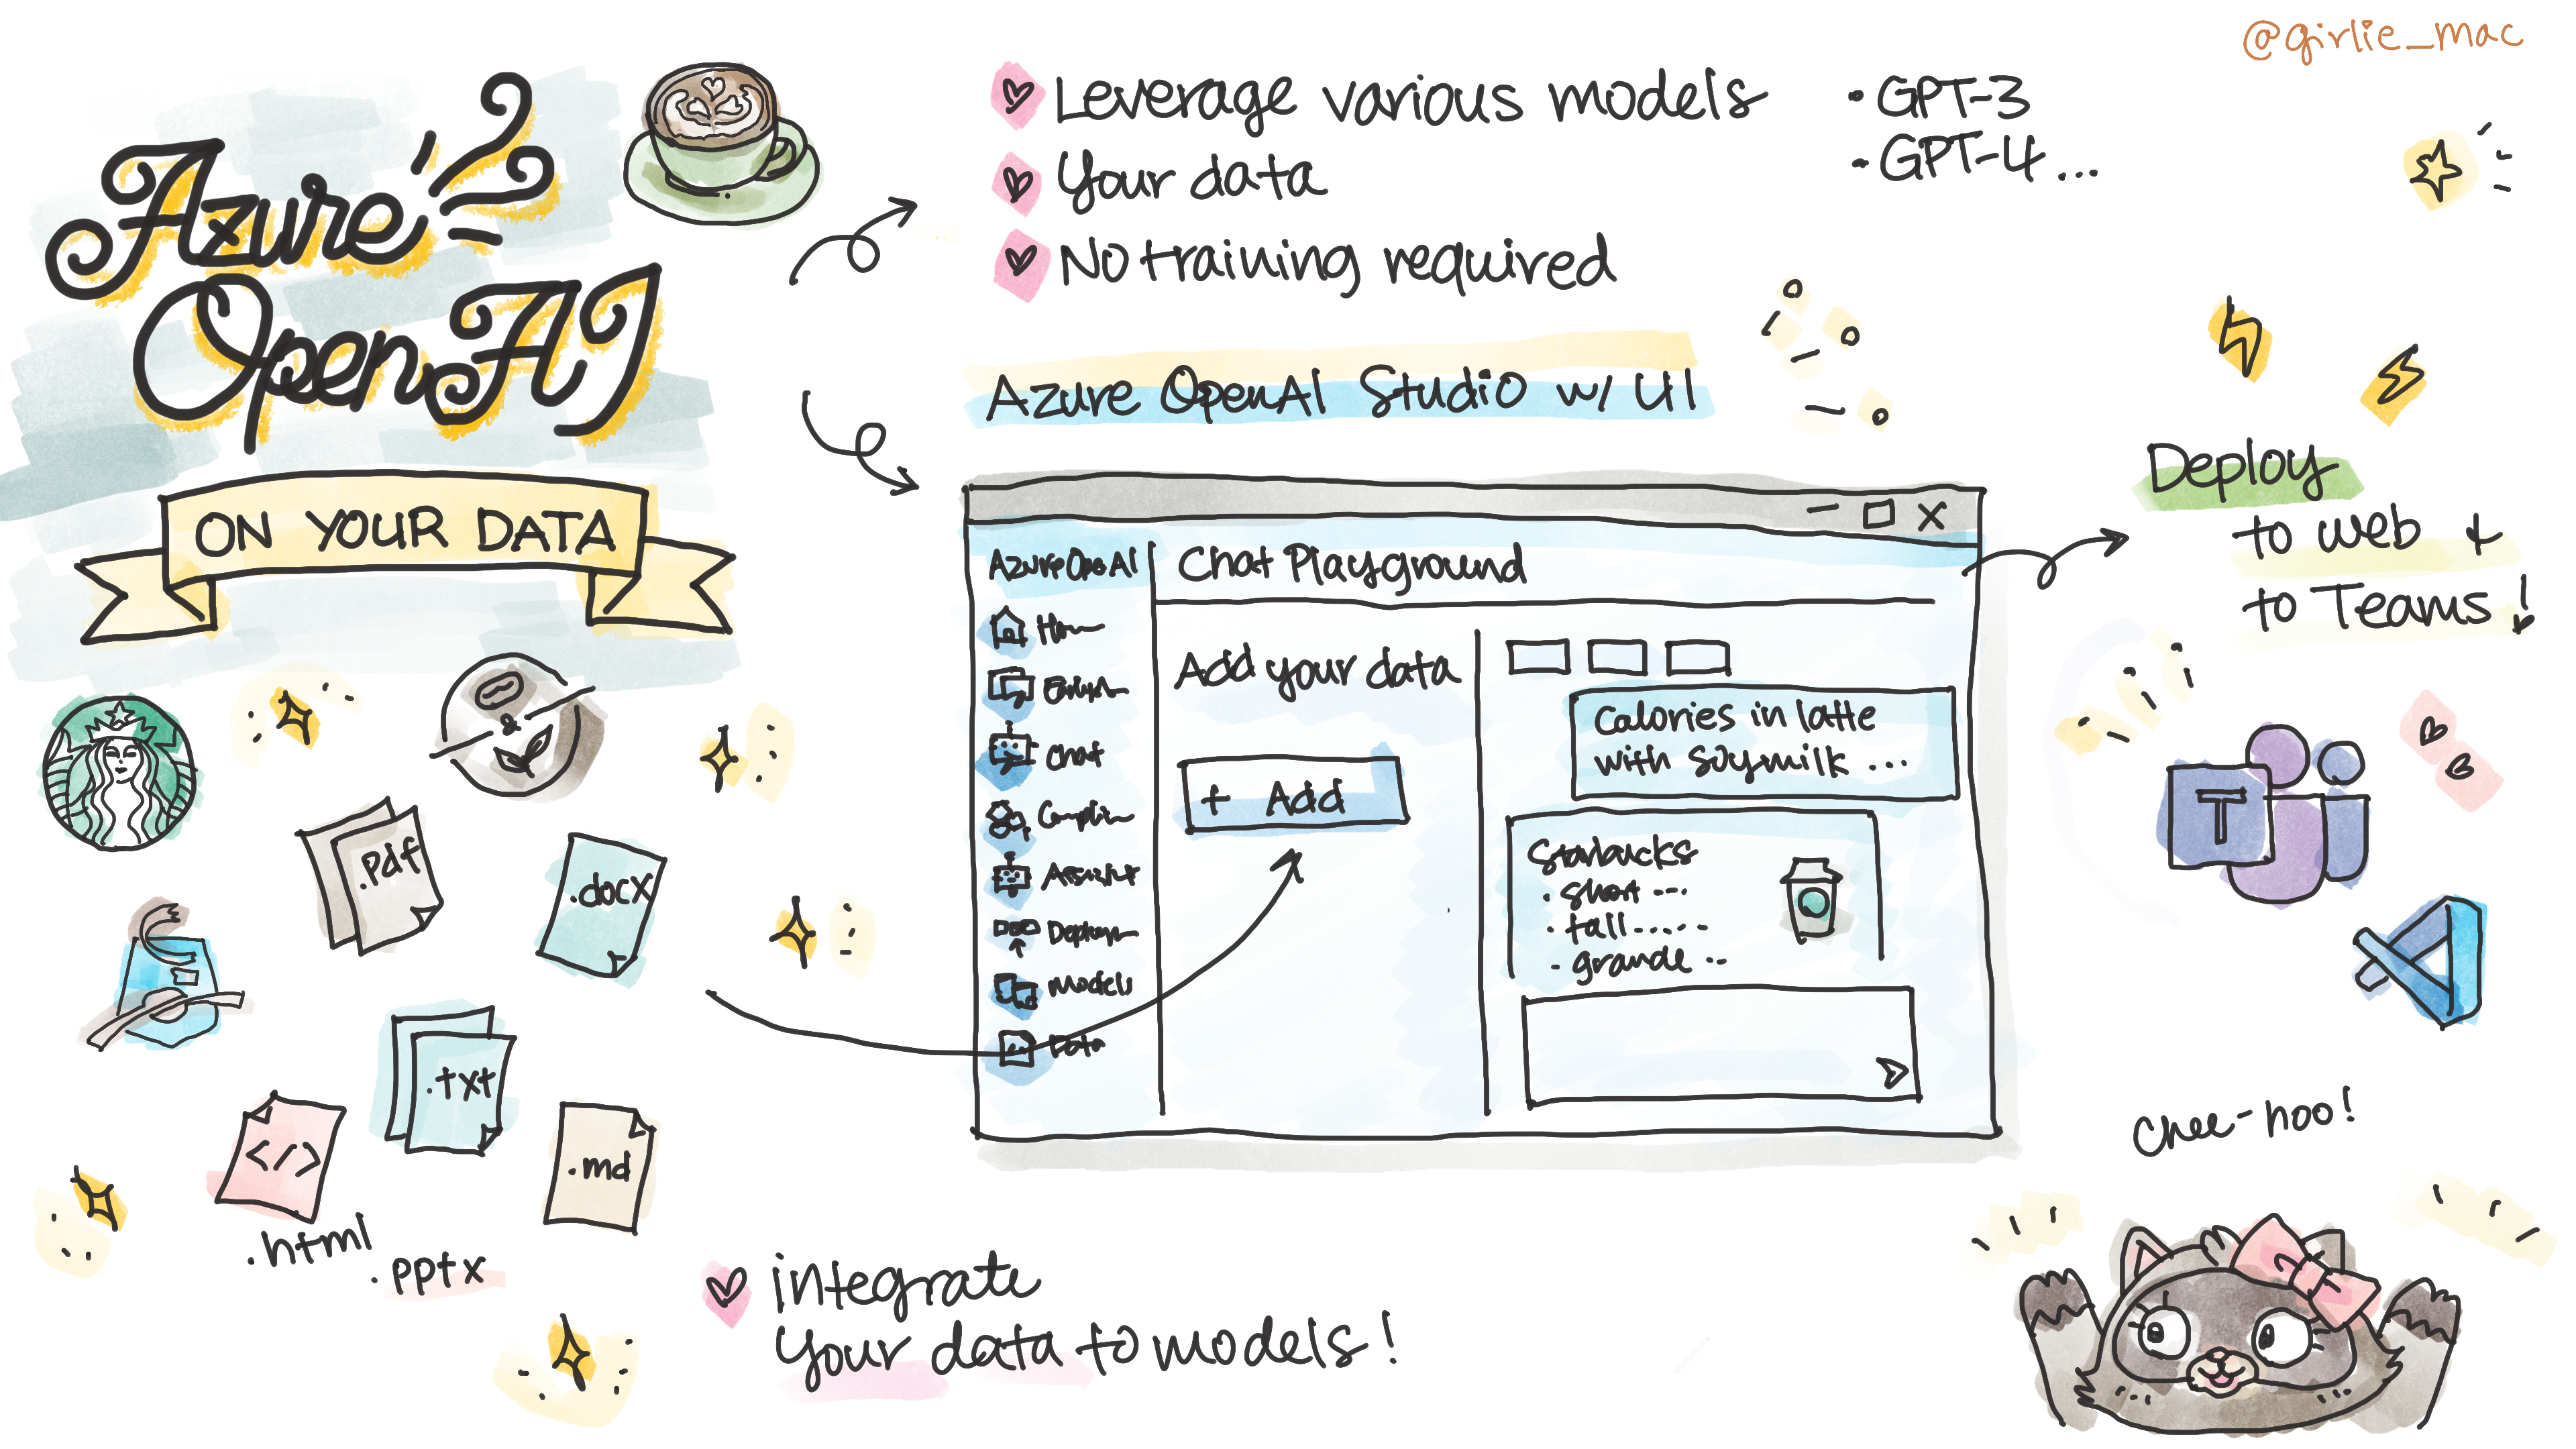 @girlie_mac
Azure
OpenAI
ON YOUR DATA
Leverage various models
Your data
No training required
• GPT-3
• GPT-4 ...
Azure OpenAI Studio w/ UI
Azure Ope AI
Chat
Models
Data
Chat Playground
Add your data
+ Add
Calories in latte
with soymilk ...
Starbucks
• short ---
• tall.....
- grande --
Deploy
to web +
to Teams!
T
&
.pdf
.docx
.txt
</>
.html
.md
.pptx
integrate
your data to models!
Chee-hoo!